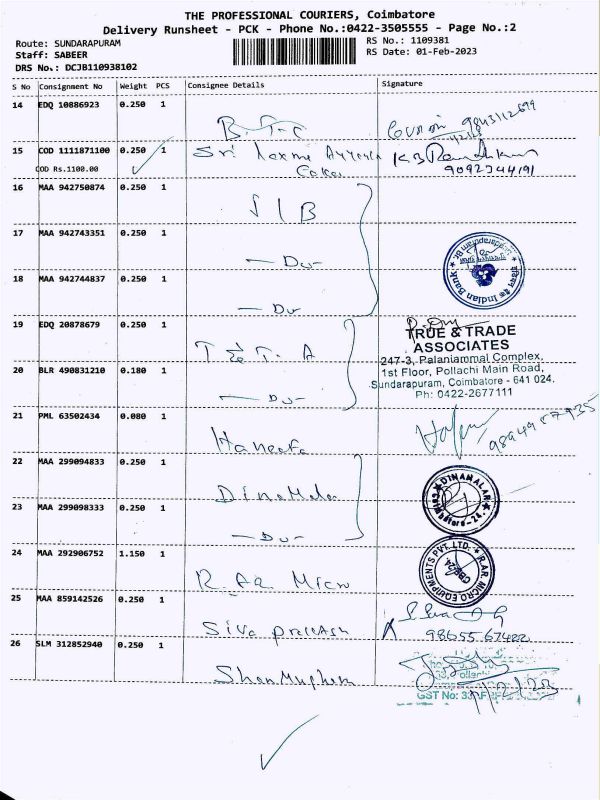 THE PROFESSIONAL COURIERS, Coimbatore
Delivery Runsheet - PCK - Phone No.:0422-3505555 - Page No.:2
Route: SUNDARAPURAM
Staff: SABEER
DRS No.: DCJB110938102
RS No.: 1109381
RS Date: 01-Feb-2023
S No Consignment No Weight PCS Consignee Details Signature
14 EDQ 10886923 0.250 1
B.T.C 9843112699
15 COD 1111871100 0.250 1 Sri Laxmi Ayyenga K B
COD Rs.1100.00 Cakes 9092344191
16 MAA 942750874 0.250 1
S I B
17 MAA 942743351 0.250 1
- Do -
Indian Bank
18 MAA 942744837 0.250 1
- Do -
19 EDQ 20878679 0.250 1
T & T. A
TRUE & TRADE
ASSOCIATES
247-3, Palaniammal Complex,
1st Floor, Pollachi Main Road,
Sundarapuram, Coimbatore - 641 024.
Ph: 0422-2677111
20 BLR 490831210 0.180 1
- Do -
21 PML 63502434 0.080 1
Haneefa 9894957935
22 MAA 299094833 0.250 1
DinaMalar
DINAMALAR
Coimbatore-24.
23 MAA 299098333 0.250 1
- Do -
24 MAA 292906752 1.150 1
R. AR Micro
R.AR MICRO EQUIPMENTS PVT. LTD.
25 MAA 859142526 0.250 1
Siva prakash 98655 67422
26 SLM 312852940 0.250 1
Shanmugham
GST No: 33
1/2/23